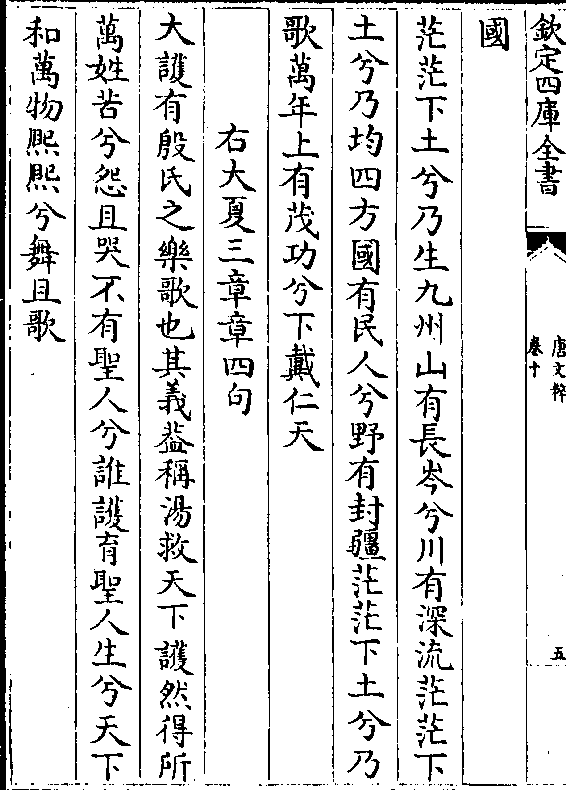 欽定四庫全書
唐文粹
卷十
五
國
茫茫下土兮乃生九州山有長岑兮川有深流茫茫下
土兮乃均四方國有民人兮野有封疆茫茫下土兮乃
歌萬年上有茂功兮下戴仁天
右大夏三章章四句
大頀有殷氏之樂歌也其義葢稱湯救天下頀然得所
萬姓苦兮怨且哭不有聖人兮誰頀育聖人生兮天下
和萬物熈熈兮舞且歌